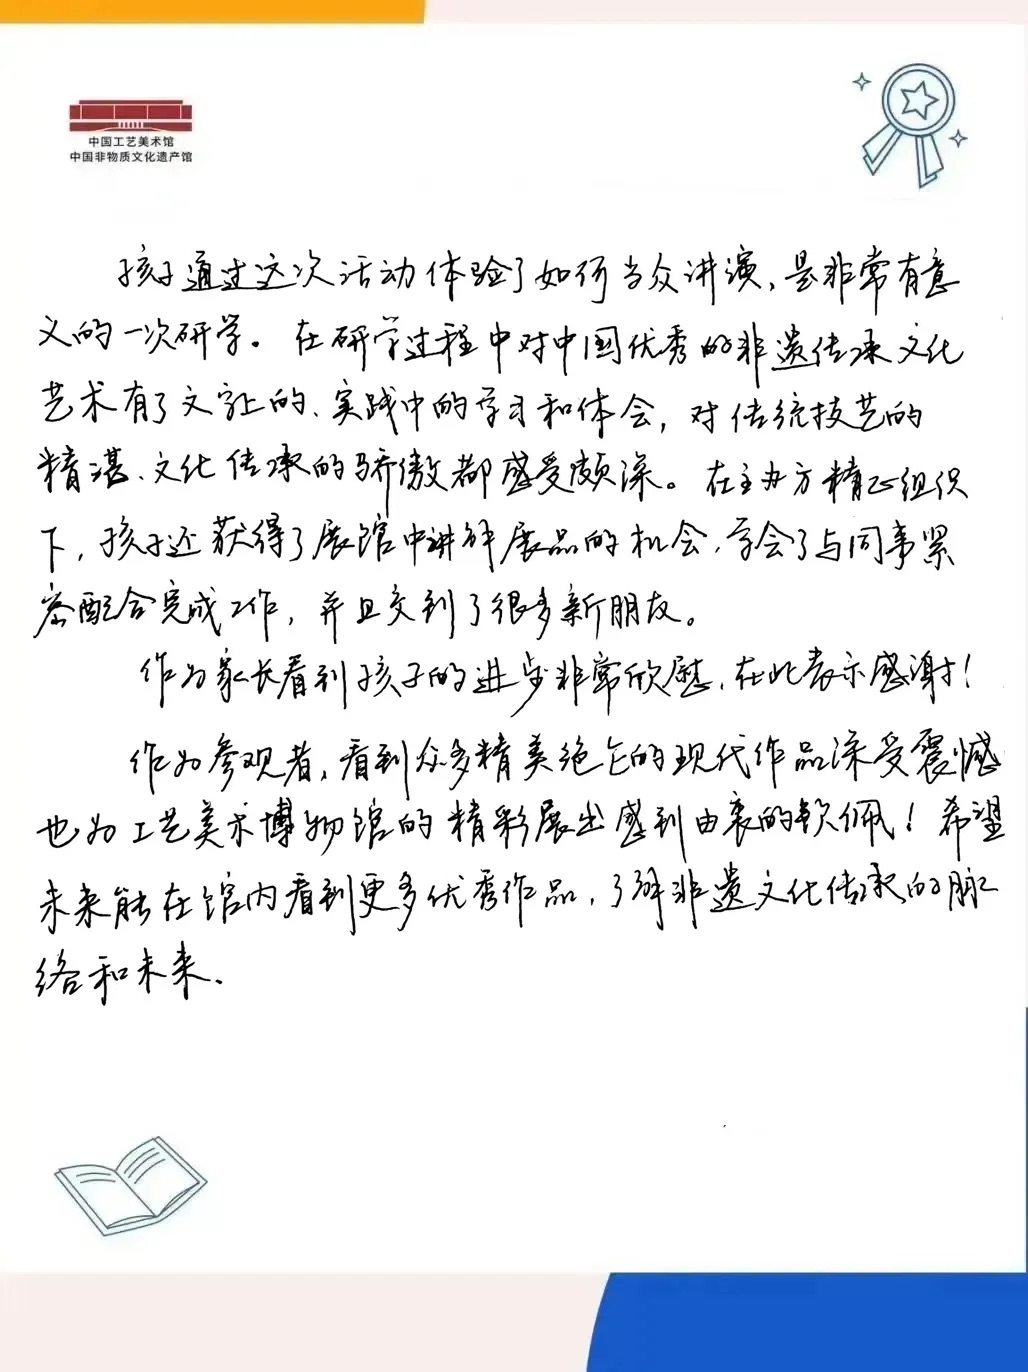 中国工艺美术馆
中国非物质文化遗产馆
孩子通过这次活动体验了如何当众讲演,是非常有意
义的一次研学。在研学过程中对中国优秀的非遗传承文化
艺术有了文字上的、实践中的学习和体会,对传统技艺的
精湛、文化传承的骄傲都感受颇深。在主办方精心组织
下,孩子还获得了展馆中讲解展品的机会,学会了与同事紧
密配合完成工作,并且交到了很多新朋友。
作为家长看到孩子的进步非常欣慰,在此表示感谢!
作为参观者,看到众多精美绝仑的现代作品深受震憾
也为工艺美术博物馆的精彩展出感到由衷的钦佩!希望
未来能在馆内看到更多优秀作品,了解非遗文化传承的脉
络和未来.